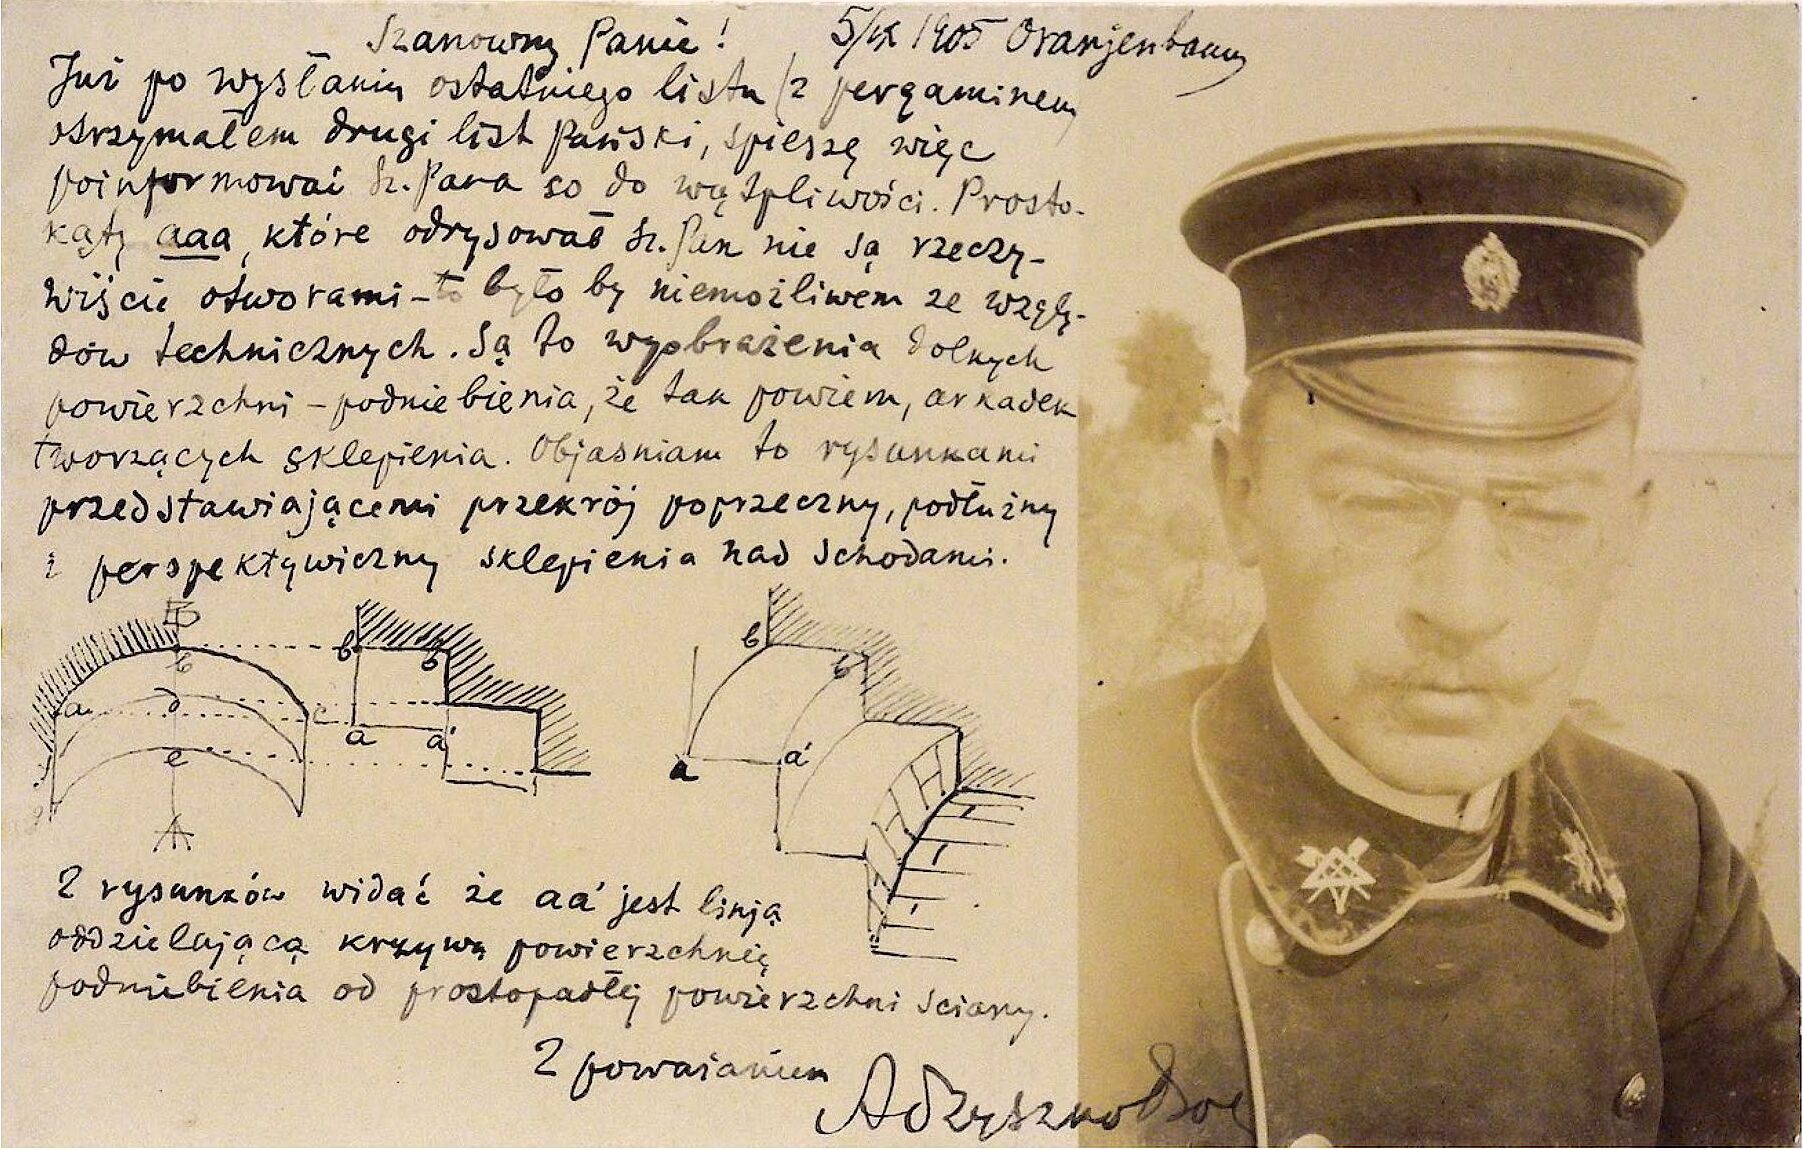 Szanowny Panie! 5/IX 1905 Oranjenbaum
Już po wysłaniu ostatniego listu (z pergaminem
otrzymałem drugi list Pański, spieszę więc
poinformować Sz. Pana co do wątpliwości. Prosto-
kąty aaa, które odrysował Sz. Pan nie są rzeczy-
wiście otworami – to było by niemożliwem ze wzglę-
dów technicznych. Są to wyobrażenia dolnych
powierzchni – podniebienia, że tak powiem, arkadek
tworzących sklepienia. Objasniam to rysunkami
przedstawiającemi przekrój poprzeczny, podłużny
i perspektywiczny sklepienia nad schodami.
B
b b b b b
a d c a a' a a'
e
A
Z rysunków widać że aa' jest linją
oddzielającą krzywą powierzchnię
podniebienia od prostopadłej powierzchni sciany.
Z poważaniem